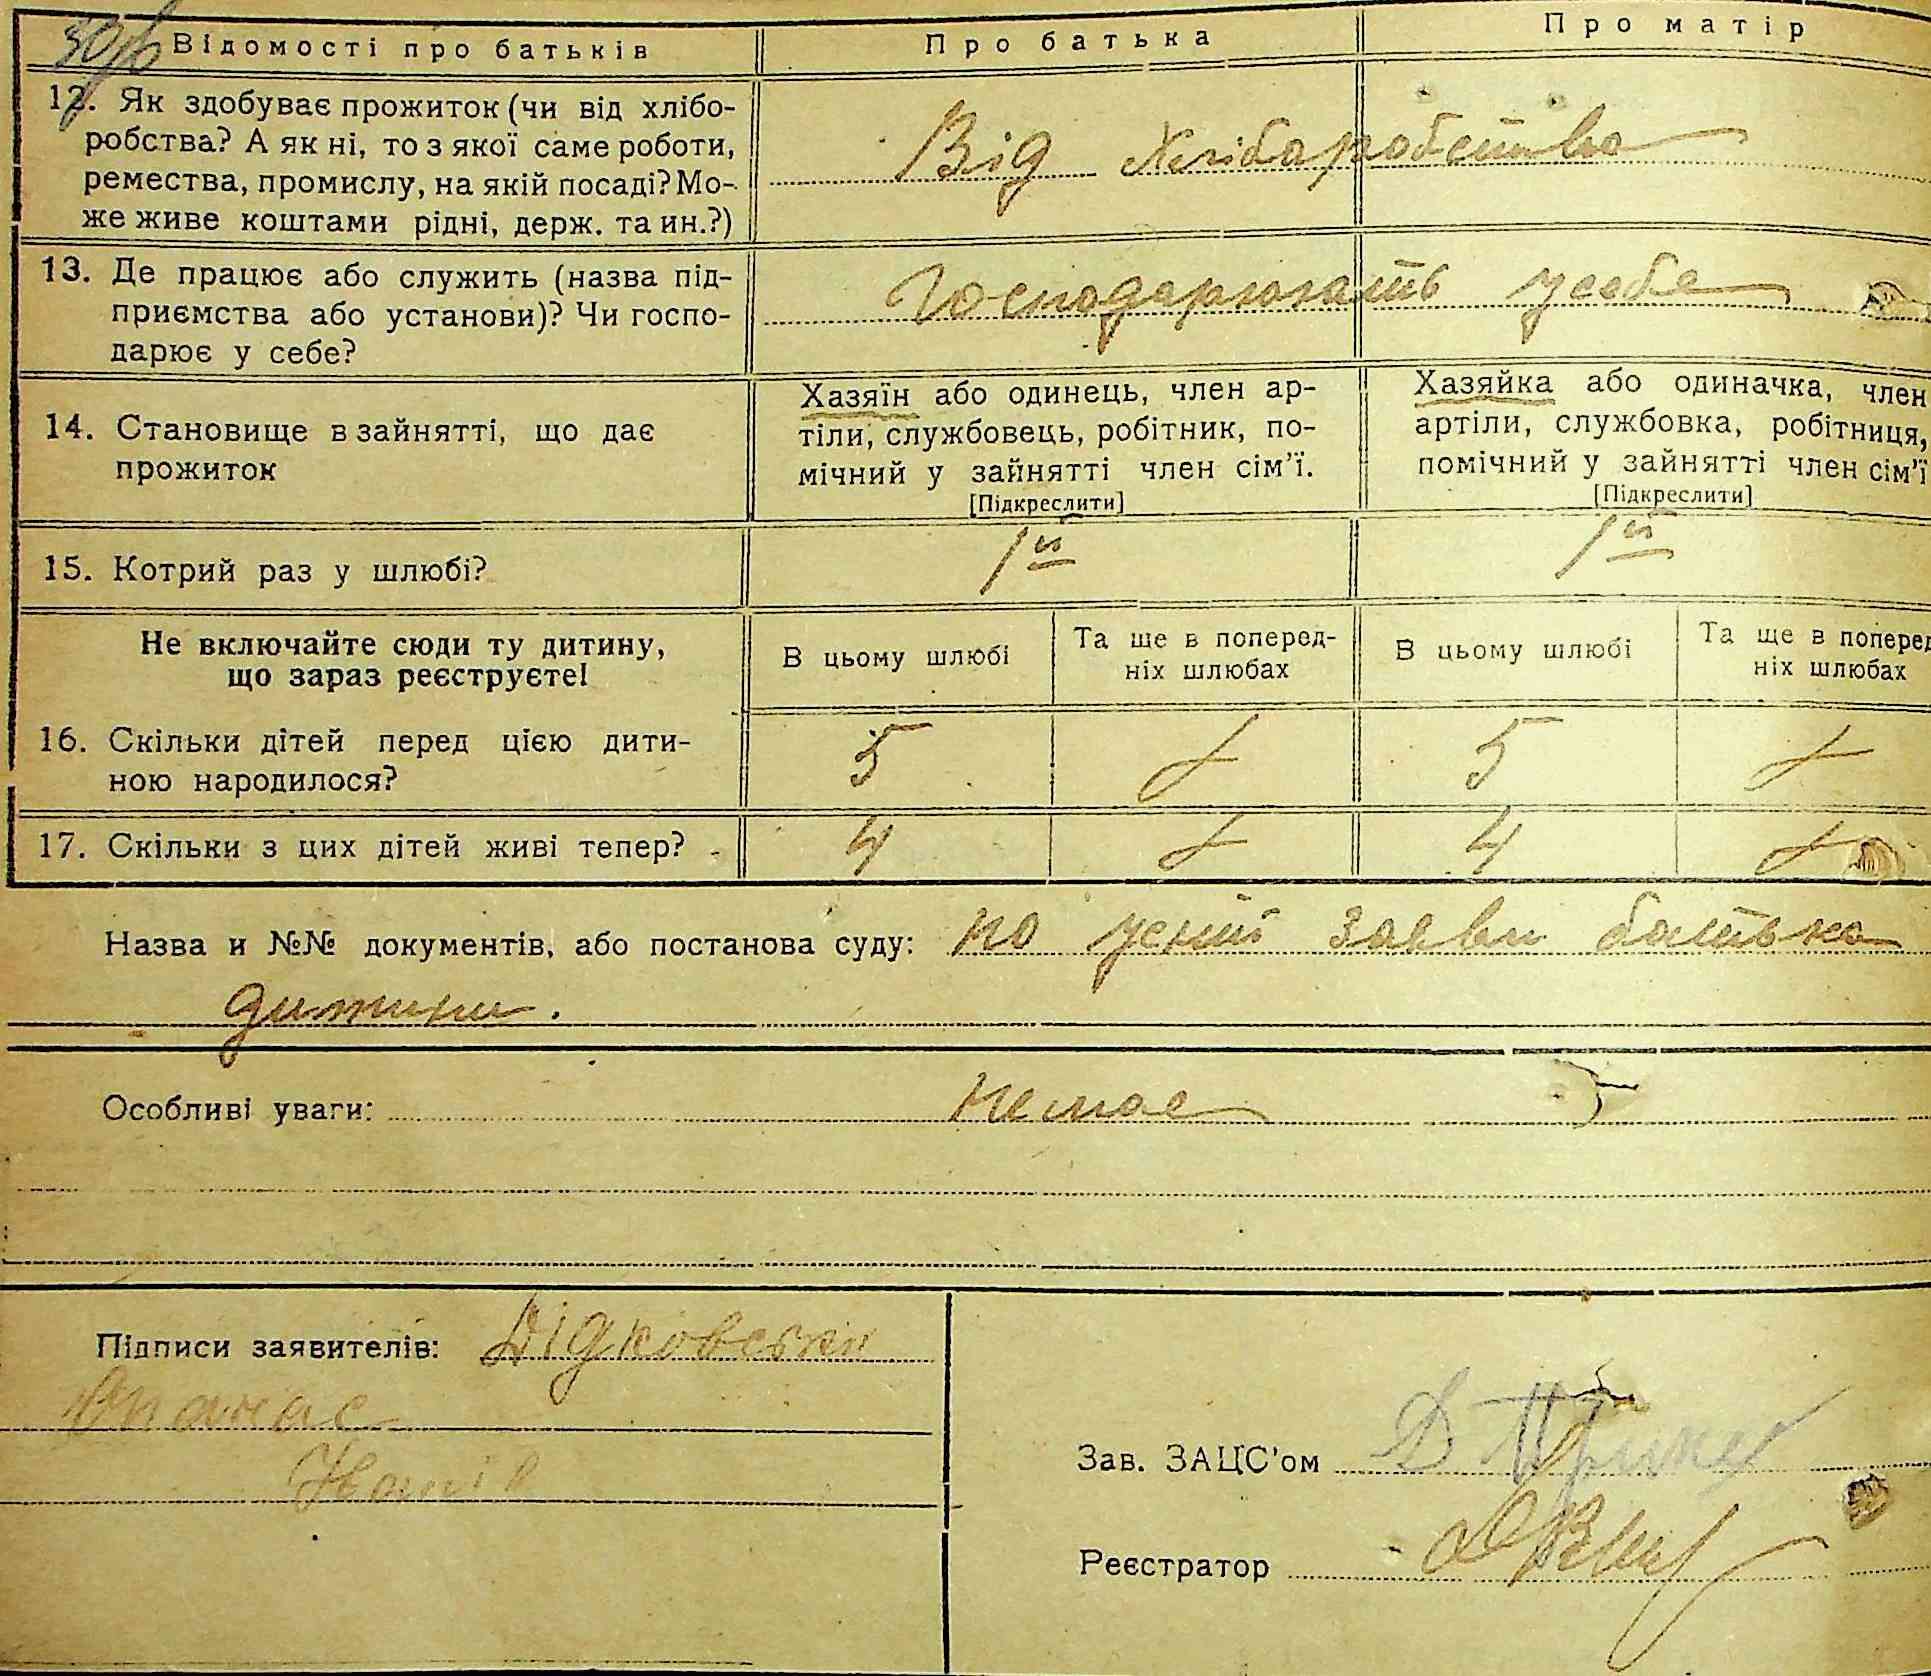 30зв
Відомості про батьків Про батька Про матір
12. Як здобуває прожиток (чи від хлібо-
робства? А як ні, то з якої саме роботи,
ремества, промислу, на якій посаді? Мо-
же живе коштами рідні, держ. та ин.?)
Від хлібаробства
13. Де працює або служить (назва під-
приємства або установи)? Чи госпо-
дарює у себе?
Господарюють усебе
14. Становище в зайнятті, що дає
прожиток
Хазяїн або одинець, член ар-
тіли, службовець, робітник, по-
мічний у зайнятті член сім'ї.
[Підкреслити]
Хазяйка або одиначка, член
артіли, службовка, робітниця,
помічний у зайнятті член сім'ї
[Підкреслити]
15. Котрий раз у шлюбі? 1й 1й
Не включайте сюди ту дитину,
що зараз реєструєте!
В цьому шлюбі
Та ще в поперед-
ніх шлюбах
В цьому шлюбі
Та ще в поперед
ніх шлюбах
16. Скільки дітей перед цією дити-
ною народилося?
5 5
17. Скільки з цих дітей живі тепер? 4 4
Назва и №№ документів, або постанова суду: по усній заяви батька
дитини.
Особливі уваги: немає
Підписи заявителів: Дідковський
Опанас
Іванів
Зав. ЗАЦС'ом Д
Реєстратор